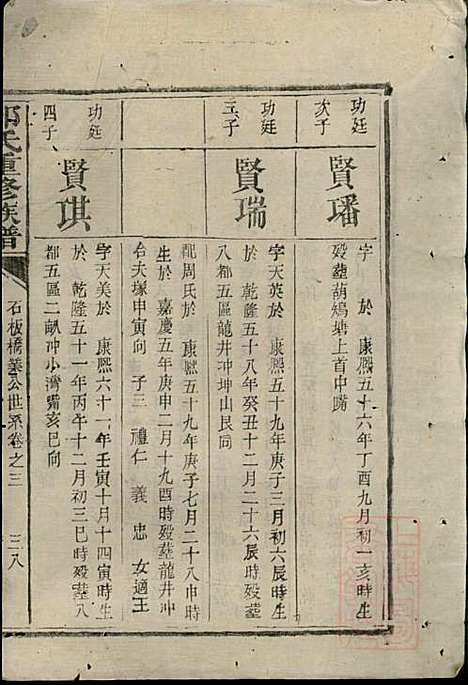 功廷
次子
賢璠
字　於　康熙五十六年丁酉九月初一亥時生
歿葬葫鴆塘上首中嘴
功廷
三子
賢瑞
字天英於　康熙五十九年庚子三月初六辰時生
於　乾隆五十八年癸丑十二月二十六辰時歿葬
八都五區龍井冲坤山艮向
配周氏於　康熙五十九年庚子七月二十八申時
生於　嘉慶五年庚申二月十九酉時歿葬龍井冲
右夫塚申寅向　子三　禮仁　義　忠　女適王
功廷
四子
賢琪
字天美於　康熙六十一年壬寅十月十四寅時生
於　乾隆五十一年丙午十二月初三巳時歿葬八
都五區二畝冲小灣嘴亥巳向
氏重修族譜
石板橋葵公世系卷之三
三八